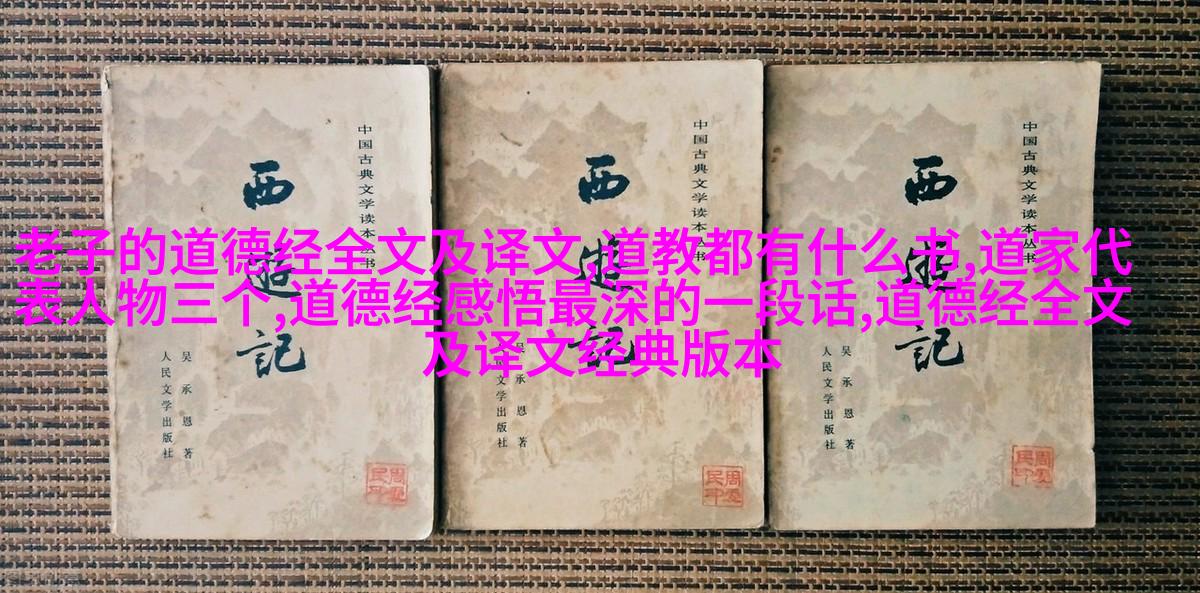 老子的道德经全文及译文,道教都有什么书,道家代
表人物三个,道德经感悟最深的一段话,道德经全文
及译文经典版本
中国古典文学读本丛书
西遊記
吴承恩 著
人民文学出版社
中国古典文学读本丛书
西遊記
吴承恩 著
人民文学出版社
中国古典文学读本丛书
西遊記
吴承恩 著
人民文学出版社